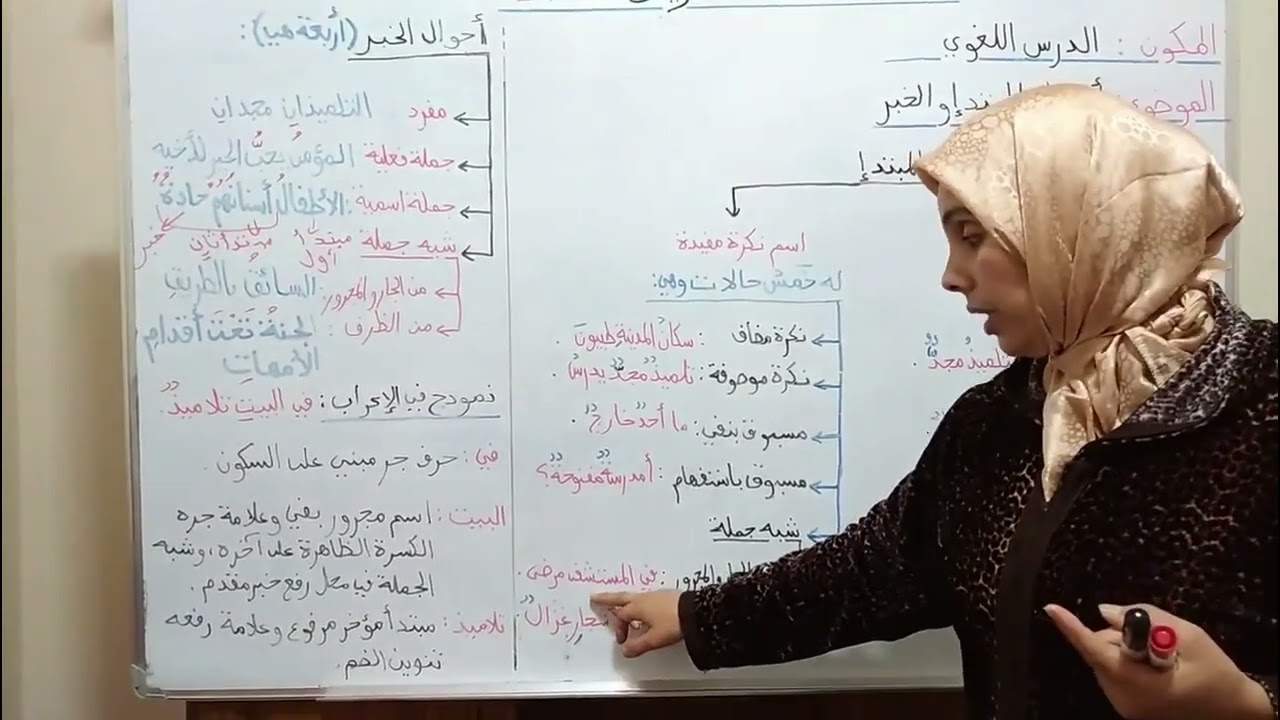 المكون : الدرس اللغوي
المبتدإ والخبر
المبتدإ
اسم نكرة مفيدة
له خمس حالات وهي:
نكرة مضاف : سكانُ المدينةِ طيبونَ .
نكرة موصوفة : تلميذٌ مجدٌّ يدرسُ .
مسبوق بنفي : ما أحدٌ خارجٌ .
مسبوق باستفهام : أمدرسةٌ مفتوحةٌ ؟
شبه جملة
والمجرور : في المستشفى مرضى .
غزالٌ .
تلميذٌ مجدٌّ .
أحوال الخبر (أربعة هي) :
مفرد التلميذانِ مجدانِ
جملة فعلية المؤمنُ يحبُّ الخير لأخيه
جملة اسمية : الأطفالُ أسنانُهُمْ حادةٌ
شبه جملة مبتدأ أول مبتدأ ثانٍ خبر
من الجار والمجرور : السائقُ بالطريقِ
من الظرف : الجنةُ تَحْتَ أقدامِ
الأمهاتِ
نموذج في الإعراب : في البيتِ تلاميذٌ .
في : حرف جر مبني على السكون .
البيت : اسم مجرور بفي وعلامة جره
الكسرة الظاهرة على آخره ، وشبه
الجملة في محل رفع خبر مقدم .
تلاميذ : مبتدأ مؤخر مرفوع وعلامة رفعه
تنوين الضم .